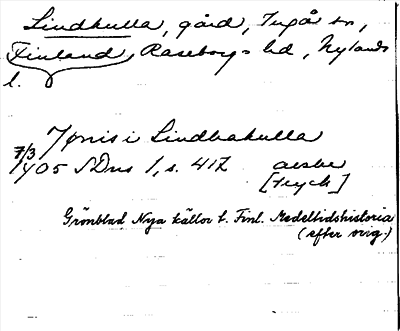 Lindkulla, gård, Ingå sn,
Finland, Raseborgs hd, Nylands
l.
Jønis i Lindhakulla
7/3
1405 SDns 1, s. 412 avskr
[tryck]
Grönblad Nya källor t. Finl. Medeltidshistoria
(efter orig.)